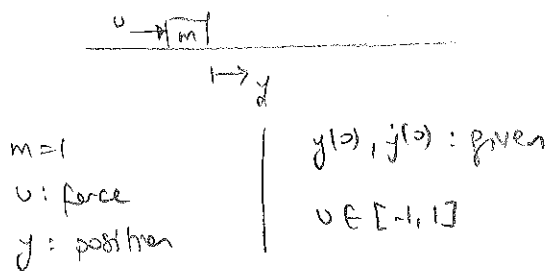 u
m
y
m=1
u: force
y: position
y(0), ẏ(0): given
u ∈ [-1, 1]